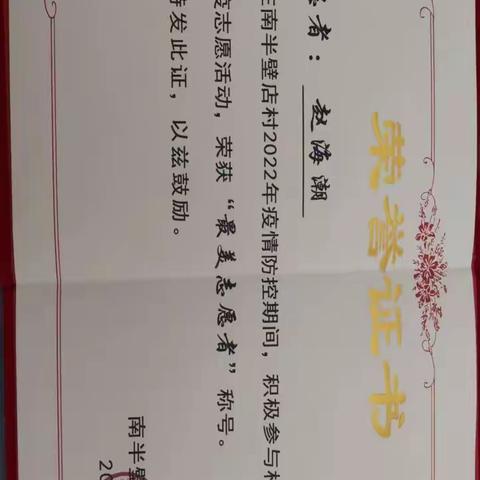 荣誉证书
者：赵海潮
在南半壁店村2022年疫情防控期间，积极参与
疫志愿活动，荣获“最美志愿者”称号。
特发此证，以兹鼓励。
南半壁
20